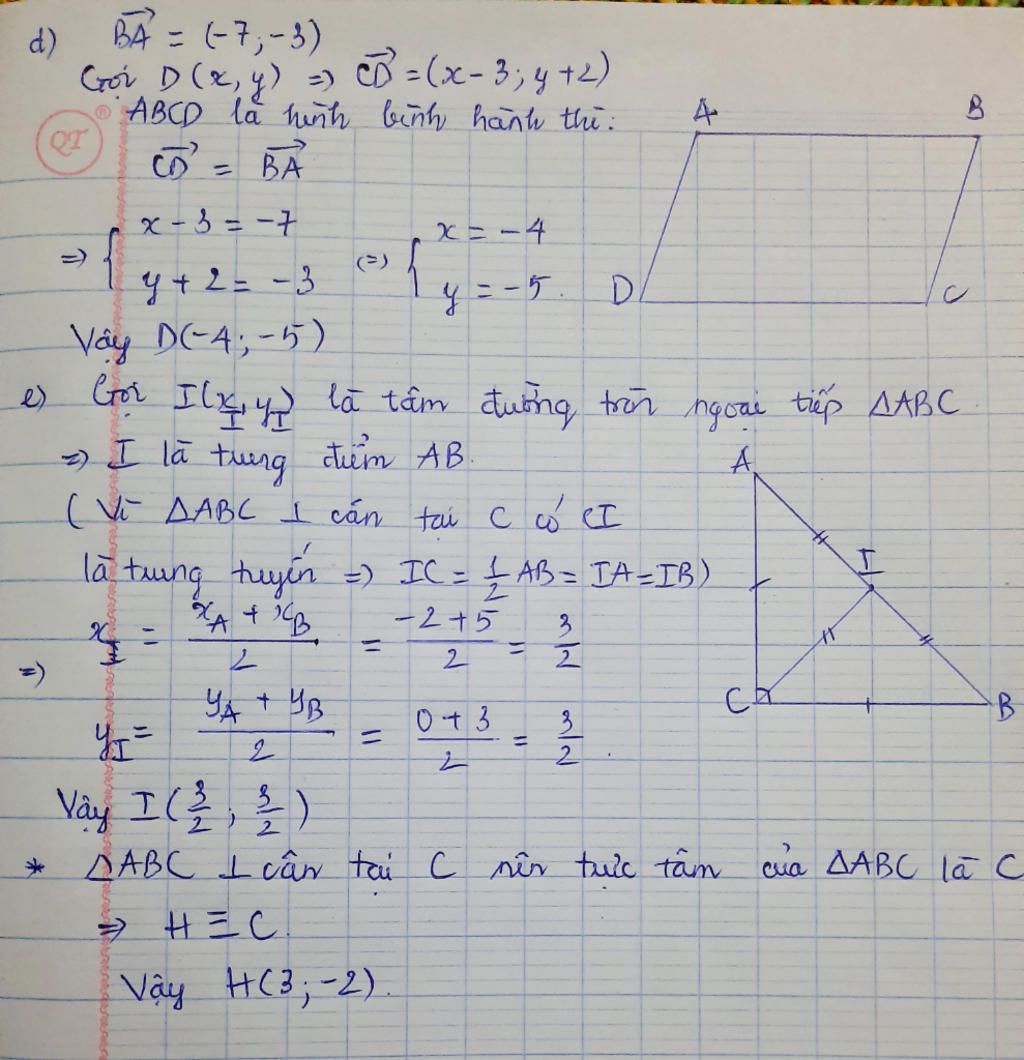 d) BA→ = (-7; -3)
Gọi D(x, y) => CD→ = (x-3; y+2)
QT®
ABCD là hình bình hành thì:
CD→ = BA→
=> { x - 3 = -7 (=) { x = -4
y + 2 = -3 y = -5.
Vậy D(-4; -5)
A B
D C
e) Gọi I(x_I, y_I) là tâm đường tròn ngoại tiếp ΔABC
=> I là trung điểm AB.
(Vì ΔABC ⊥ cân tại C có CI
là trung tuyến => IC = 1/2 AB = IA = IB)
=> x_I = (x_A + x_B)/2 = (-2+5)/2 = 3/2
y_I = (y_A + y_B)/2 = (0+3)/2 = 3/2.
A
I
C B
Vậy I(3/2; 3/2)
* ΔABC ⊥ cân tại C nên trực tâm của ΔABC là C
=> H ≡ C.
Vậy H(3; -2).